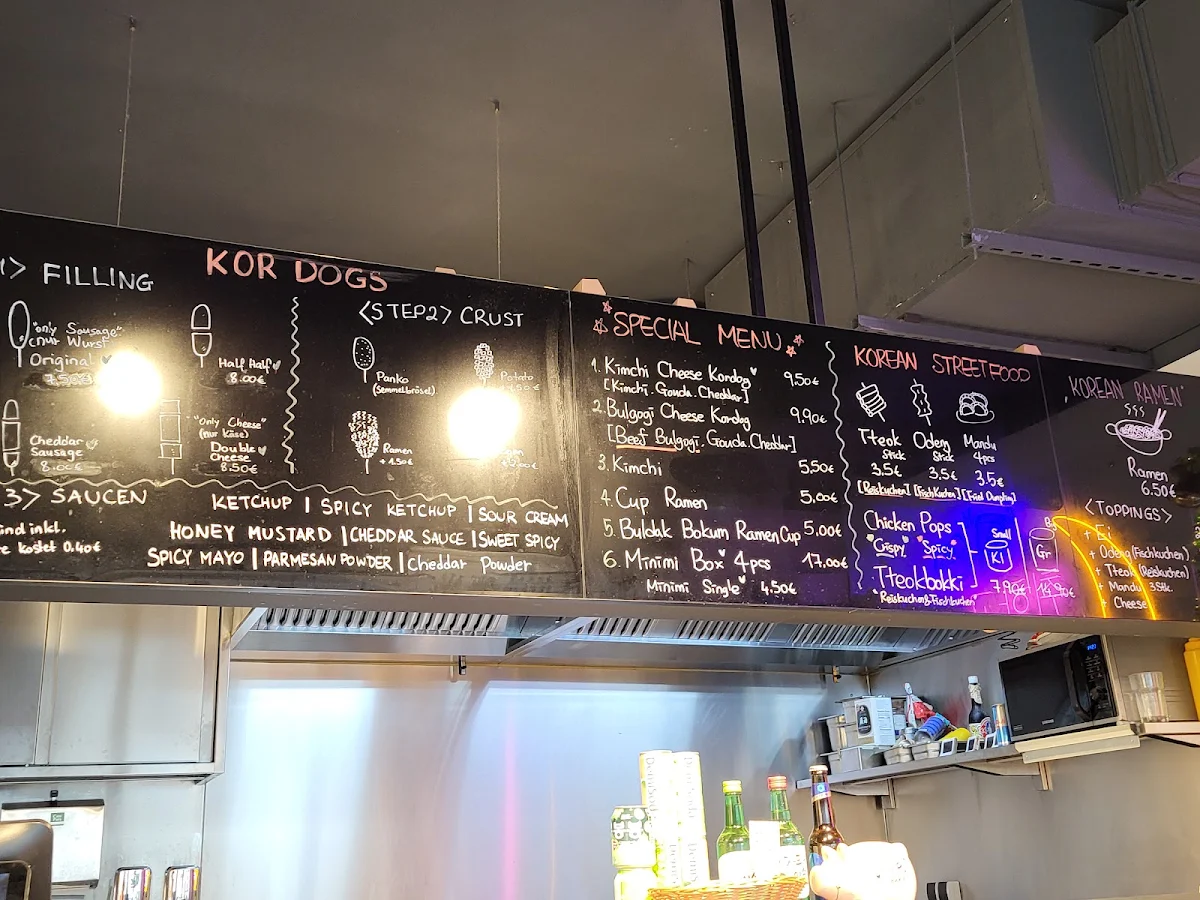 KOR DOGS
> FILLING
"only Sausage"
(nur Wurst)
Original
Half Half
8.00€
Cheddar
Sausage
8.00€
"Only Cheese"
(nur Käse)
Double
Cheese
8.50€
<STEP2> CRUST
Panko
(Semmelbrösel)
Potato
Ramen
+ 1.50€
3> SAUCEN
ind inkl.
kostet 0.40€
KETCHUP | SPICY KETCHUP | SOUR CREAM
HONEY MUSTARD | CHEDDAR SAUCE | SWEET SPICY
SPICY MAYO | PARMESAN POWDER | Cheddar Powder
SPECIAL MENU
1. Kimchi Cheese Kordog 9,50€
[Kimchi. Gouda. Cheddar]
2. Bulgogi Cheese Kordog 9,90€
[Beef Bulgogi. Gouda. Cheddar]
3. Kimchi 5,50€
4. Cup Ramen 5,00€
5. Buldak Bokum Ramen Cup 5,00€
6. Minimi Box 4pcs 17.00€
Minimi Single 4.50€
KOREAN STREETFOOD
Tteok Odeng Mandu
Stick Stick 4pcs
3.5€ 3.5€ 3.5€
[Reiskuchen] [Fischkuchen] [Fried Dumpling]
Chicken Pops
"Crispy" "Spicy"
Tteokbokki
"Reiskuchen&Fischkuchen"
Small
Kl
Gr
7,90€
KOREAN RAMEN
Ramen
6.50€
<TOPPINGS>
+ Ei
+ Odeng (Fischkuchen)
+ Tteok (Reiskuchen)
+ Mandu 3Stk.
+ Cheese